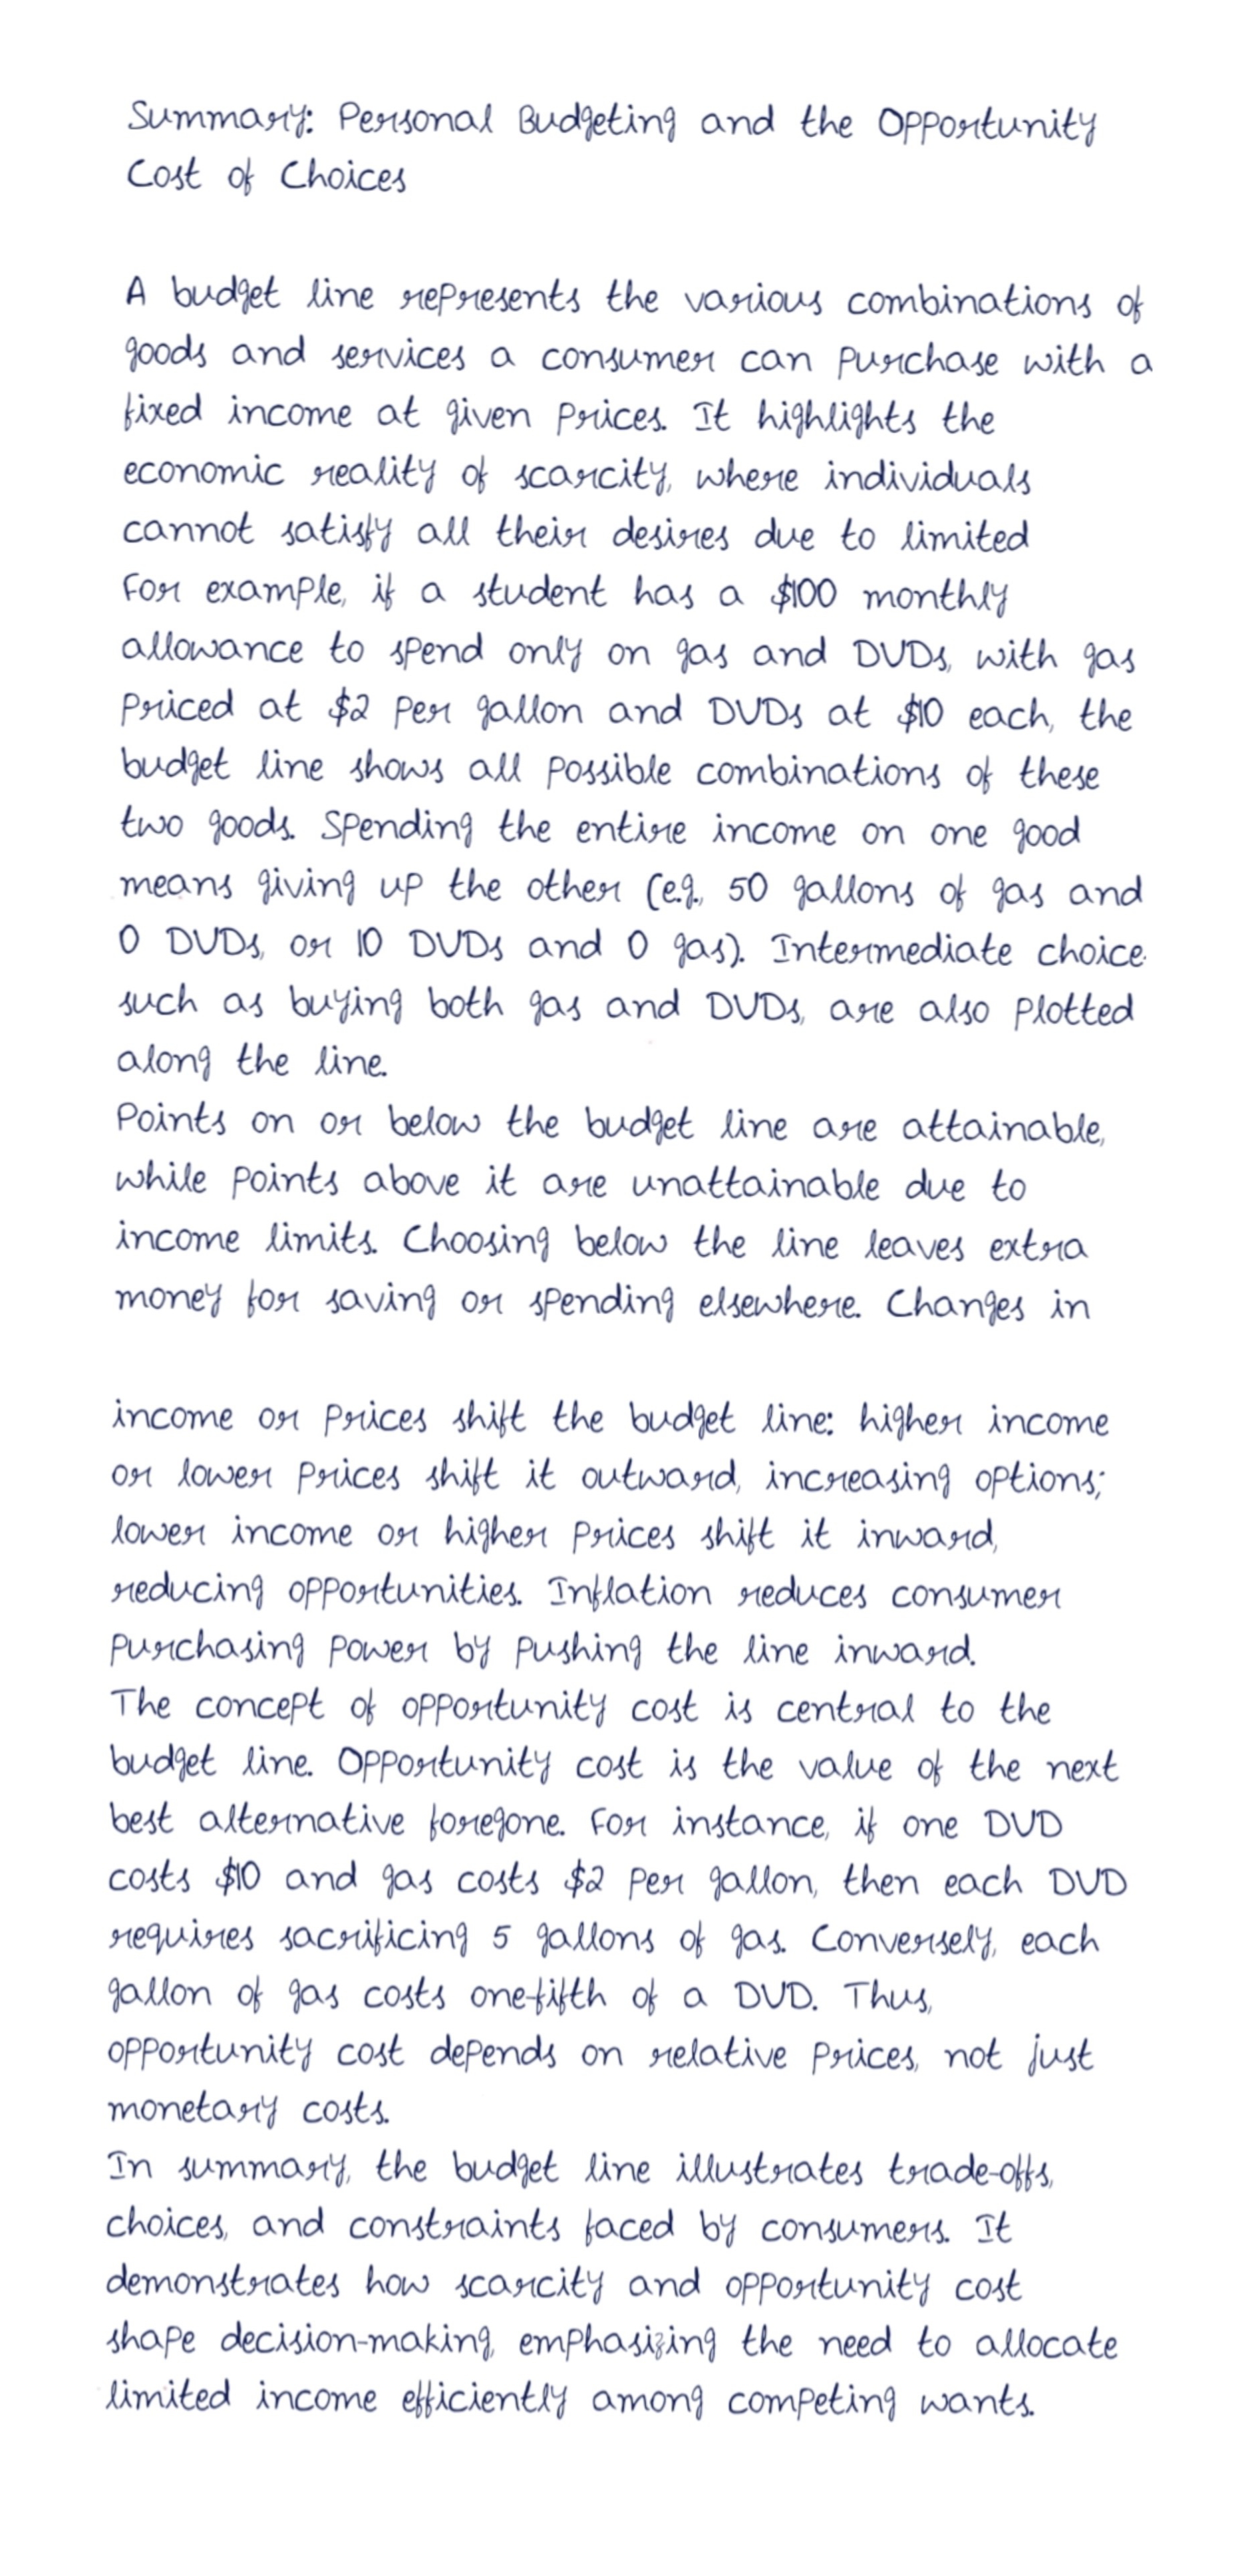 Summary: Personal Budgeting and the Opportunity
Cost of Choices
A budget line represents the various combinations of
goods and services a consumer can purchase with a
fixed income at given prices. It highlights the
economic reality of scarcity, where individuals
cannot satisfy all their desires due to limited
For example, if a student has a $100 monthly
allowance to spend only on gas and DVDs, with gas
priced at $2 per gallon and DVDs at $10 each, the
budget line shows all possible combinations of these
two goods. Spending the entire income on one good
means giving up the other (e.g., 50 gallons of gas and
0 DVDs, or 10 DVDs and 0 gas). Intermediate choice
such as buying both gas and DVDs, are also plotted
along the line.
Points on or below the budget line are attainable,
while points above it are unattainable due to
income limits. Choosing below the line leaves extra
money for saving or spending elsewhere. Changes in
income or prices shift the budget line: higher income
or lower prices shift it outward, increasing options;
lower income or higher prices shift it inward,
reducing opportunities. Inflation reduces consumer
purchasing power by pushing the line inward.
The concept of opportunity cost is central to the
budget line. Opportunity cost is the value of the next
best alternative foregone. For instance, if one DVD
costs $10 and gas costs $2 per gallon, then each DVD
requires sacrificing 5 gallons of gas. Conversely, each
gallon of gas costs one-fifth of a DVD. Thus,
opportunity cost depends on relative prices, not just
monetary costs.
In summary, the budget line illustrates trade-offs,
choices, and constraints faced by consumers. It
demonstrates how scarcity and opportunity cost
shape decision-making, emphasizing the need to allocate
limited income efficiently among competing wants.